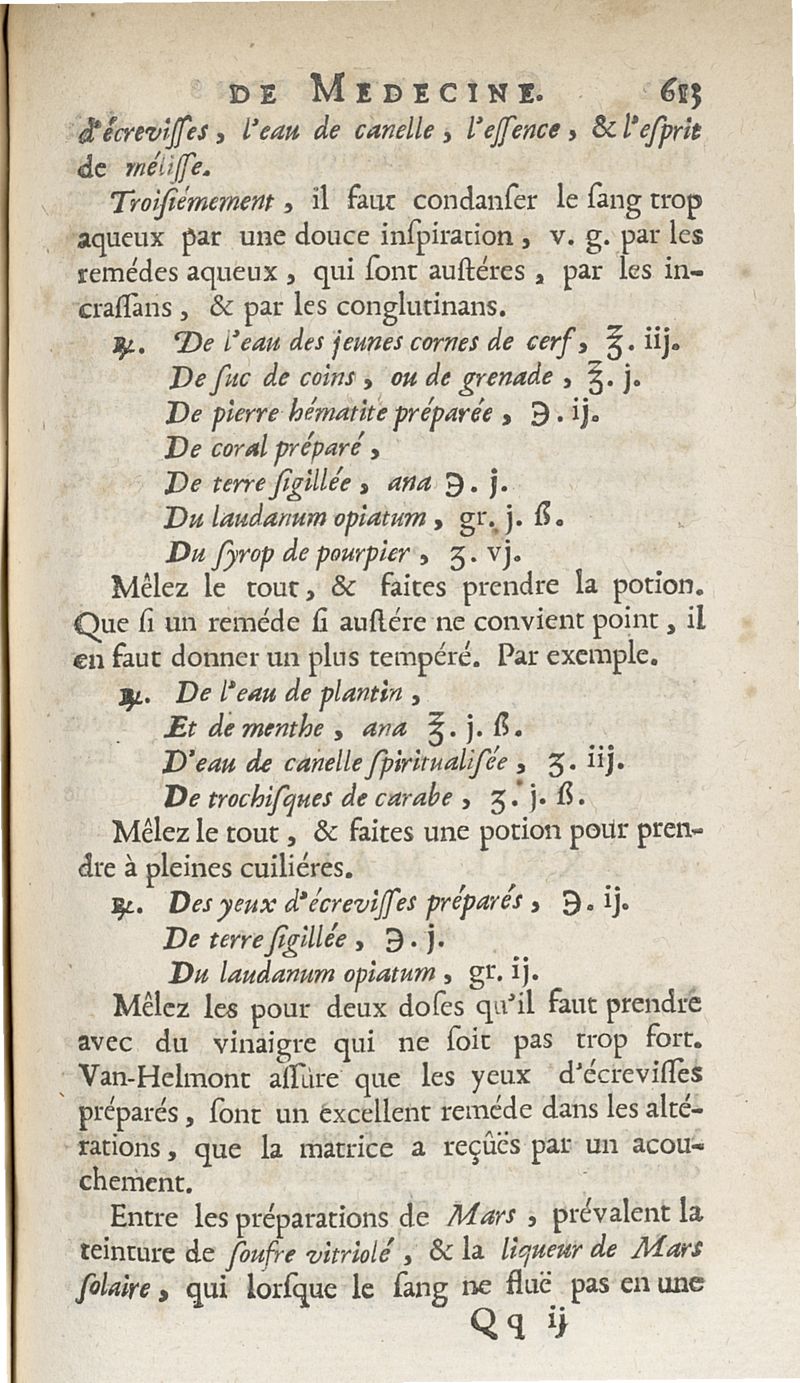 DE MEDECINE. 613
d'écrevisses, l'eau de canelle, l'essence, & l'esprit
de mélisse.
Troisiémement, il faut condanser le sang trop
aqueux par une douce inspiration, v. g. par les
remédes aqueux, qui sont austéres, par les in-
crassans, & par les conglutinans.
℞. De l'eau des jeunes cornes de cerf, ℥. iij.
De suc de coins, ou de grenade, ℥. j.
De pierre hématite préparée, ℈. ij.
De coral préparé,
De terre sigillée, ana ℈. j.
Du laudanum opiatum, gr. j. ß.
Du syrop de pourpier, ʒ. vj.
Mêlez le tout, & faites prendre la potion.
Que si un reméde si austére ne convient point, il
en faut donner un plus tempéré. Par exemple.
℞. De l'eau de plantin,
Et de menthe, ana ℥. j. ß.
D'eau de canelle spiritualisée, ʒ. iij.
De trochisques de carabe, ʒ. j. ß.
Mêlez le tout, & faites une potion pour pren-
dre à pleines cuiliéres.
℞. Des yeux d'écrevisses préparés, ℈. ij.
De terre sigillée, ℈. j.
Du laudanum opiatum, gr. ij.
Mêlez les pour deux doses qu'il faut prendre
avec du vinaigre qui ne soit pas trop fort.
Van-Helmont assûre que les yeux d'écrevisses
préparés, sont un excellent reméde dans les alté-
rations, que la matrice a reçûës par un acou-
chement.
Entre les préparations de Mars, prévalent la
teinture de soufre vitriolé, & la liqueur de Mars
solaire, qui lorsque le sang ne fluë pas en une
Qq ij